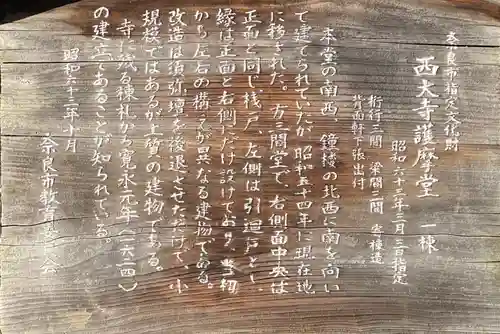 奈良市指定文化財
西大寺護摩堂 一棟
昭和六十三年三月三日指定
桁行三間 梁間三間 宝形造
背面軒下張出付
本堂の南西、鐘楼の北西に南を向い
て建てられていたが、昭和五十四年に現在地
に移された。方三間堂で、右側面中央は
正面と同じ桟戸、左側は引違戸とし、
縁は正面と右側にだけ設けており、当初
から左右の構えが異なる建物である。
改造は須弥壇を後退させただけで、小
規模ではあるが上質の建物である。
寺に残る棟札から寛永元年(一六二四)
の建立であることが知られている。
昭和六十三年十月
奈良市教育委員会